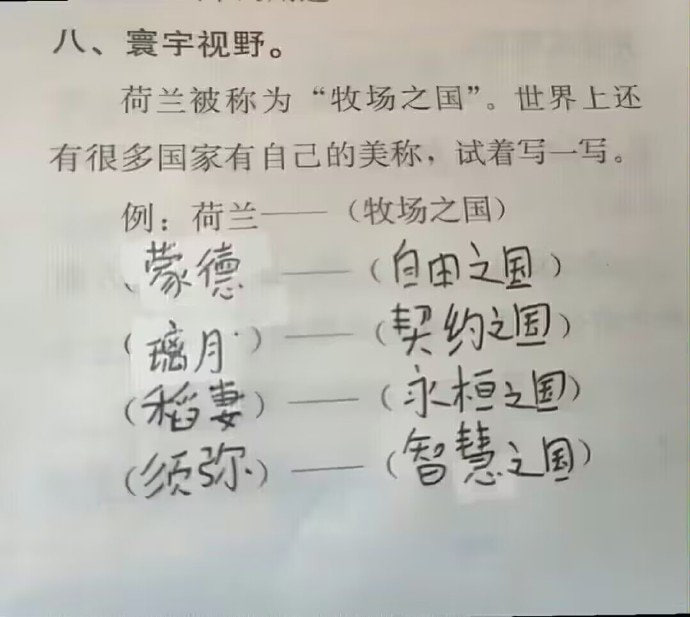 八、寰宇视野。
荷兰被称为“牧场之国”。世界上还
有很多国家有自己的美称，试着写一写。
例：荷兰——（牧场之国）
蒙德 ——（自由之国）
（璃月）——（契约之国）
（稻妻）——（永桓之国）
（须弥）——（智慧之国）